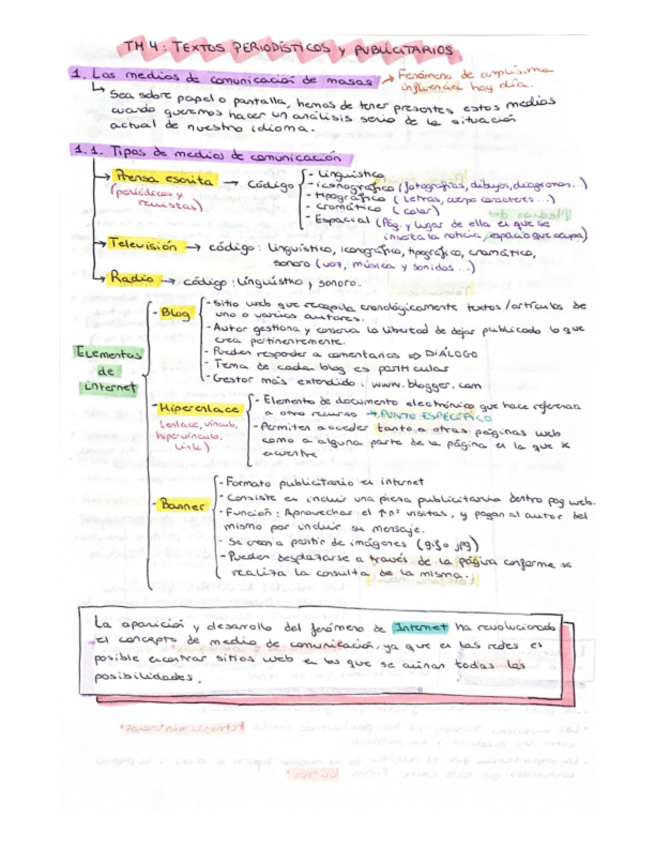 TM 4: TEXTOS PERIODÍSTICOS Y PUBLICITARIOS
1. Los medios de comunicación de masas → Fenómeno de amplísima
influencia hoy día.
↳ Sea sobre papel o pantalla, hemos de tener presentes estos medios
cuando queremos hacer un análisis serio de la situación
actual de nuestro idioma.
1.1. Tipos de medios de comunicación
→ Prensa escrita → código
(periódicos y
revistas)
- Lingüístico
- iconográfico (fotografías, dibujos, diagramas...)
- tipográfico (letras, cuerpo caracteres...)
- cromático (color)
- Espacial (Pág. y lugar de ella en que se
inserta la noticia, espacio que ocupa)
→ Televisión → código: Lingüístico, iconográfico, tipográfico, cromático,
sonoro (voz, música y sonidos...)
→ Radio → código: Lingüístico y sonoro.
Elementos
de
internet
- Blog
- Sitio web que recopila cronológicamente textos/artículos de
uno o varios autores.
- Autor gestiona y conserva la libertad de dejar publicado lo que
crea pertinentemente.
- Pueden responder a comentarios ⇒ DIÁLOGO
- Tema de cada blog es particular
- Gestor más extendido: www.blogger.com
- Hiperenlace
(enlace, vínculo,
hipervínculo,
link)
- Elemento de documento electrónico que hace referencia
a otro recurso → PUNTO ESPECÍFICO
- Permiten acceder tanto a otras páginas web
como a alguna parte de la página en la que se
encuentre
- Banner
- Formato publicitario en internet
- Consiste en incluir una pieza publicitaria dentro pag web.
- Función: Aprovechar el ↑nº visitas, y pagan al autor del
mismo por incluir su mensaje.
- Se crean a partir de imágenes (gif o jpg)
- Pueden desplazarse a través de la página conforme se
realiza la consulta de la misma.
La aparición y desarrollo del fenómeno de Internet ha revolucionado
el concepto de medio de comunicación, ya que en las redes es
posible encontrar sitios web en los que se aúnan todas las
posibilidades.